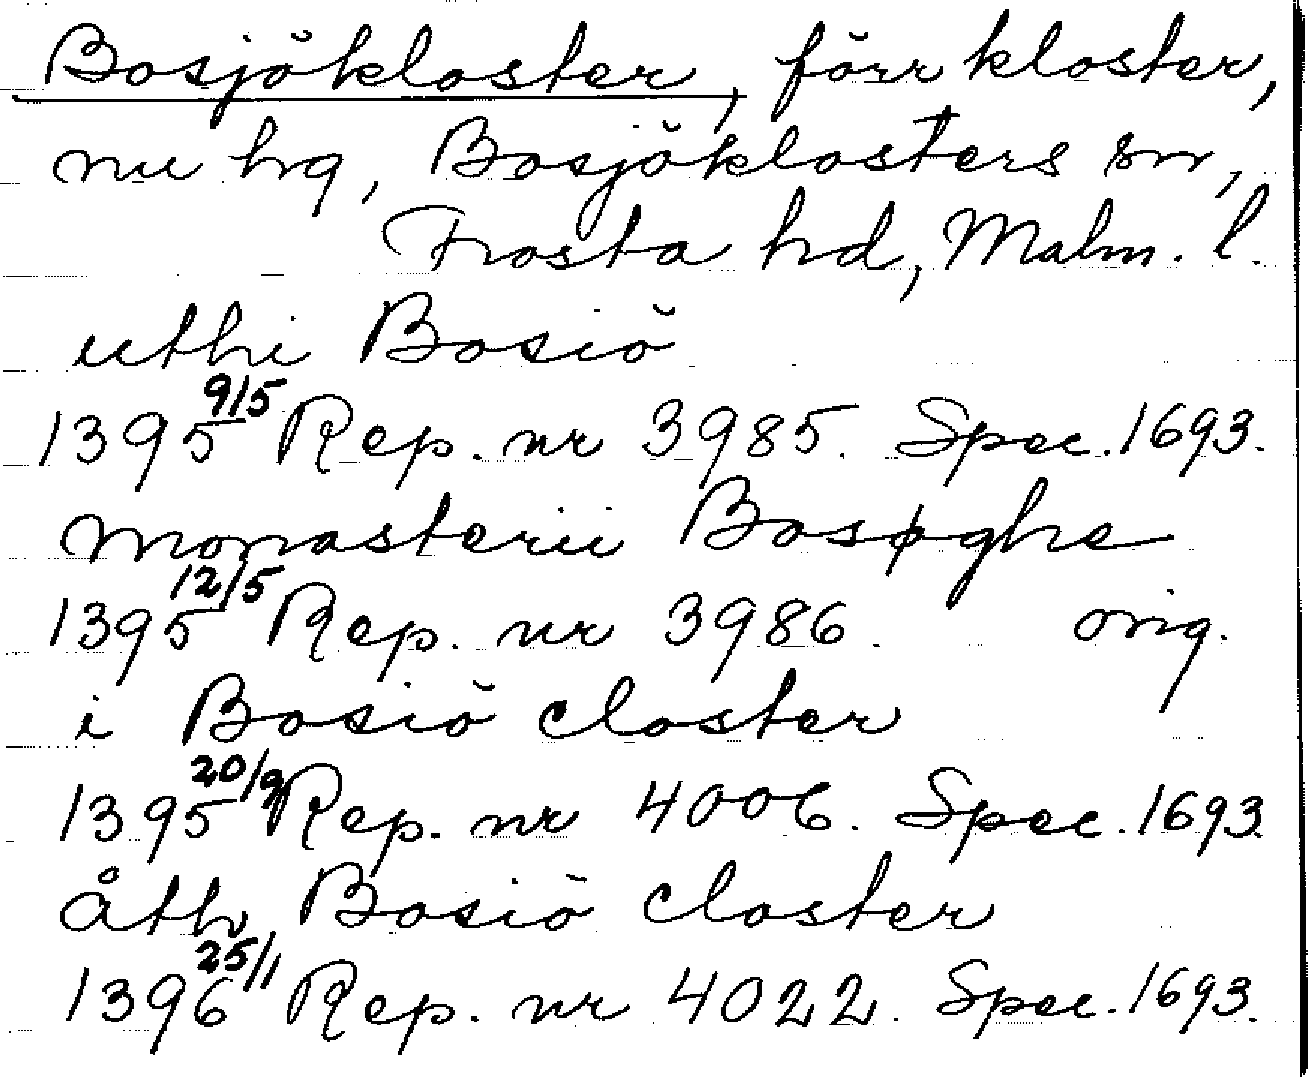 Bosjökloster, förr kloster,
nu hg, Bosjöklosters sn,
Frosta hd, Malm. l.
uthi Bosiö
1395 9/5 Rep. nr 3985. Spec. 1693.
monasterii Bosøghe
1395 12/5 Rep. nr 3986. orig.
i Bosiö closter
1395 20/9 Rep. nr 4006. Spec. 1693.
åth Bosiö closter
1396 25/1 Rep. nr 4022. Spec. 1693.